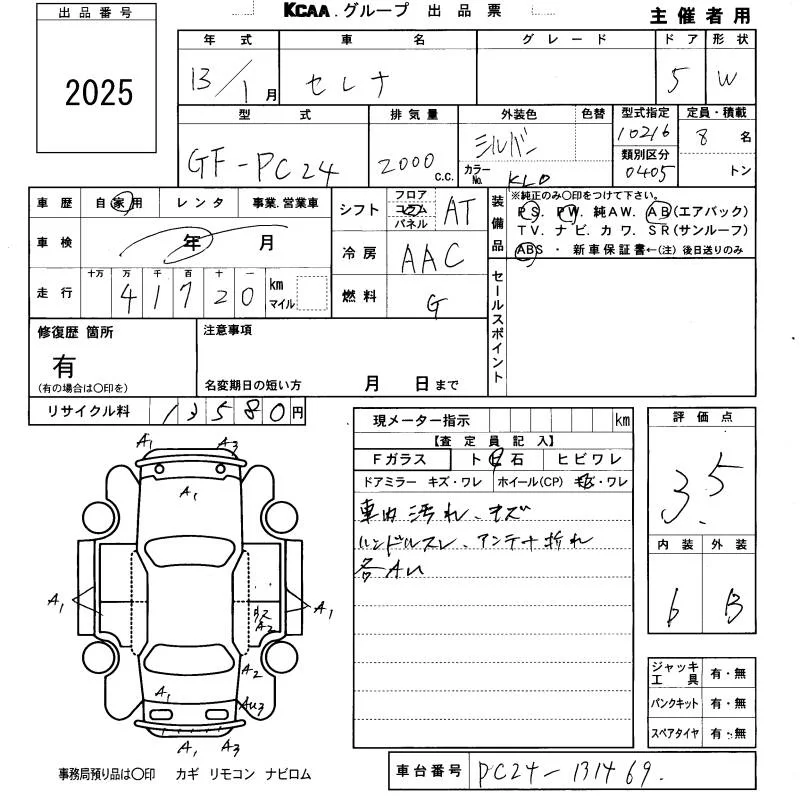 出品番号
2025
KCAA. グループ 出品票
主催者用
年式 車名 グレード ドア 形状
13/1月 セレナ 5 W
型式 排気量 外装色 色替 型式指定 定員・積載
GF-PC24 2000 c.c. シルバー 10216 8 名
カラーNo. KL0 類別区分 0405 トン
車歴 自家用 レンタ 事業.営業車
シフト フロア コラム パネル AT
装備品 ※純正のみ〇印をつけて下さい。
PS. PW. 純AW. AB(エアバック)
TV. ナビ. カワ. SR(サンルーフ)
ABS ・ 新車保証書←(注) 後日送りのみ
車検 年 月
冷房 AAC
走行 十万 万 千 百 十 一 km マイル
41720
燃料 G
セールスポイント
修復歴 箇所
有
(有の場合は〇印を)
注意事項
名変期日の短い方 月 日まで
リサイクル料 13580円
現メーター指示 km
【査定員記入】
Fガラス ト石 ヒビワレ
ドアミラー キズ・ワレ ホイール(CP) キズ・ワレ
車内汚れ、キズ
ハンドルスレ、アンテナ折れ
各AU
評価点
3.5
内装 外装
6 B
A1 A3
A1
A1 A1
A2
A2
A1 AU3
A1 A3
ジャッキ工具 有・無
パンクキット 有・無
スペアタイヤ 有・無
事務局預り品は〇印 カギ リモコン ナビロム
車台番号 PC24-131469.